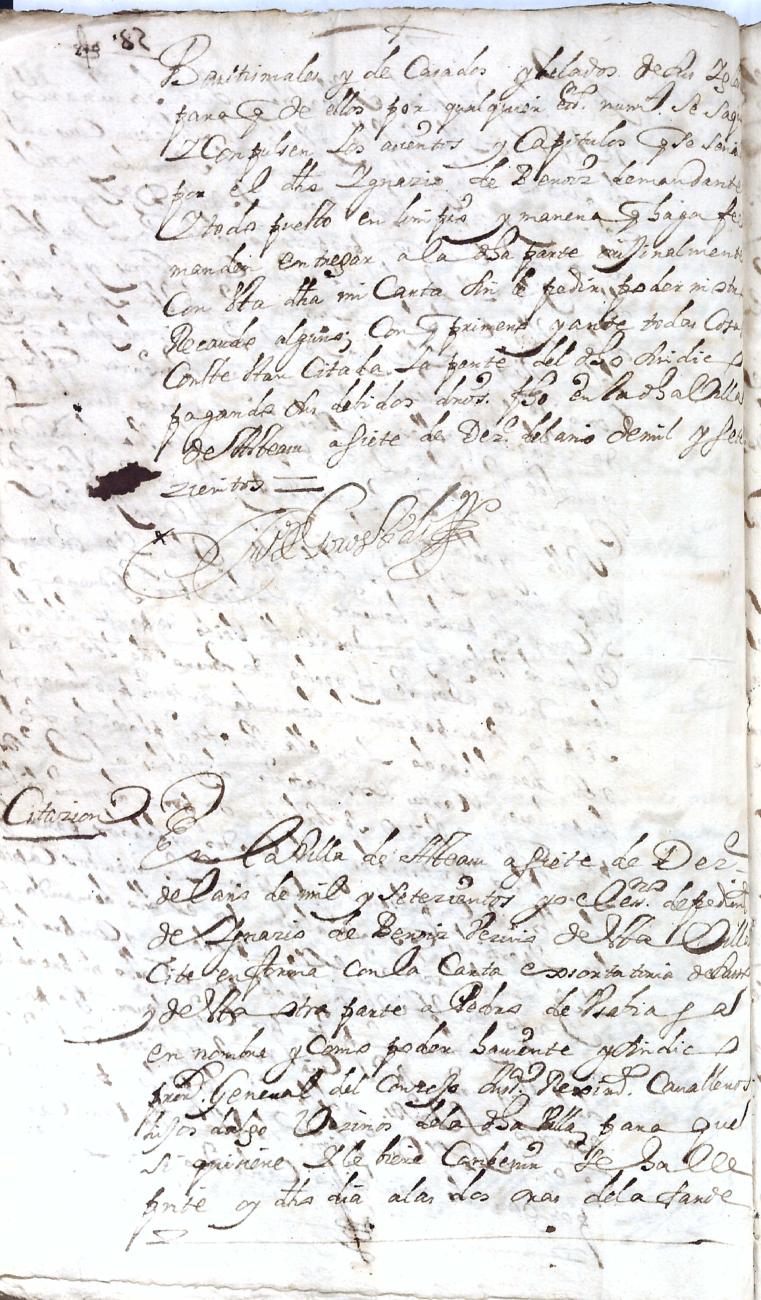 82
Bautismales y de Casados y belados de sus Ygle
para q de ellos por qualquier essno. numl. se saq
Y Conpulsen los asientos y Capitulos q se seña
por el dho Ygnazio de Beroiz demandante
Y todo puesto en limpio y manera q haga fee
manden entregar a la dha parte originalmente
Con esta dha mi Carta sin le pedir poder ni otro
Recaudo alguno, Con q primero y ante todas Cosas
Conste estar Citada la parte del dho sindico
pagando sus debidos dros. fho en la dha Villa
de a siete de Dez.e del año de mil y sete
zientos =
Citazion
En la Villa de a siete de Dez.e
del año de mil y setezientos yo el essno. de pedimto
de Ygnazio de Beroiz Vezino de esta Villa
Cite en forma con la Carta exsortatoria
y de esta otra parte a Pedro de
en nombre y Como poder haviente y sindico
pror. General del Conzejo Cavalleros
hijos dalgo Vezinos de la dha Villa, para que
si quisiere se halle
pnte oy dho dia a las dos oras de la tarde